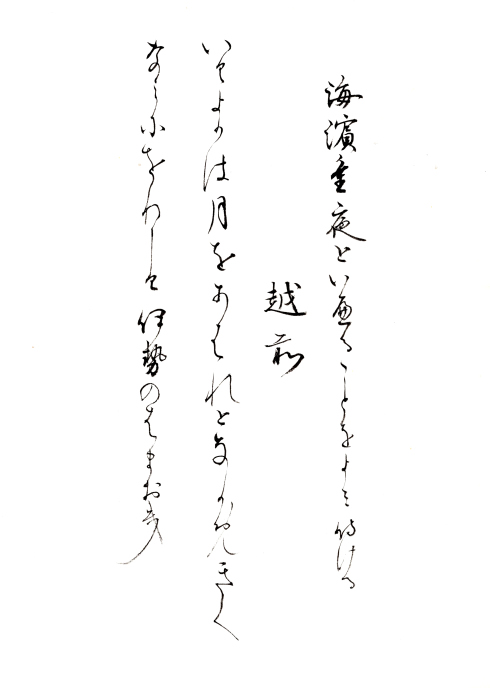 海濱重夜といへることをよミ侍ける
越前
いくよかは月をあはれとなかめきて
なみにをりしく伊勢のはまおき